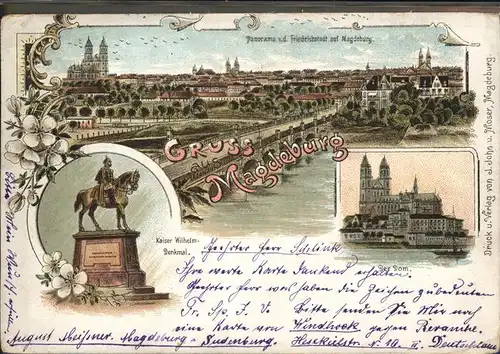 Panorama v.d. Friedrichstadt auf Magdeburg.
GRUSS
AUS
Magdeburg
Kaiser Wilhelm-
Denkmal.
Der Dom.
Druck u. Verlag von J. John u. Moser, Magdeburg.
Geehrter Herr Schlink
Ihre werte Karte dankend erhalten.
Geehrter Herr was haben die Zeichen zu bedeuten
Fr. Sp. J. V. Bitte senden Sie mir noch
eine Karte von Windhoek gegen Revanche.
August Meißner. Magdeburg-
Sudenburg. Heskeilstr. No 10. II. Deutschland
Bitte Mein